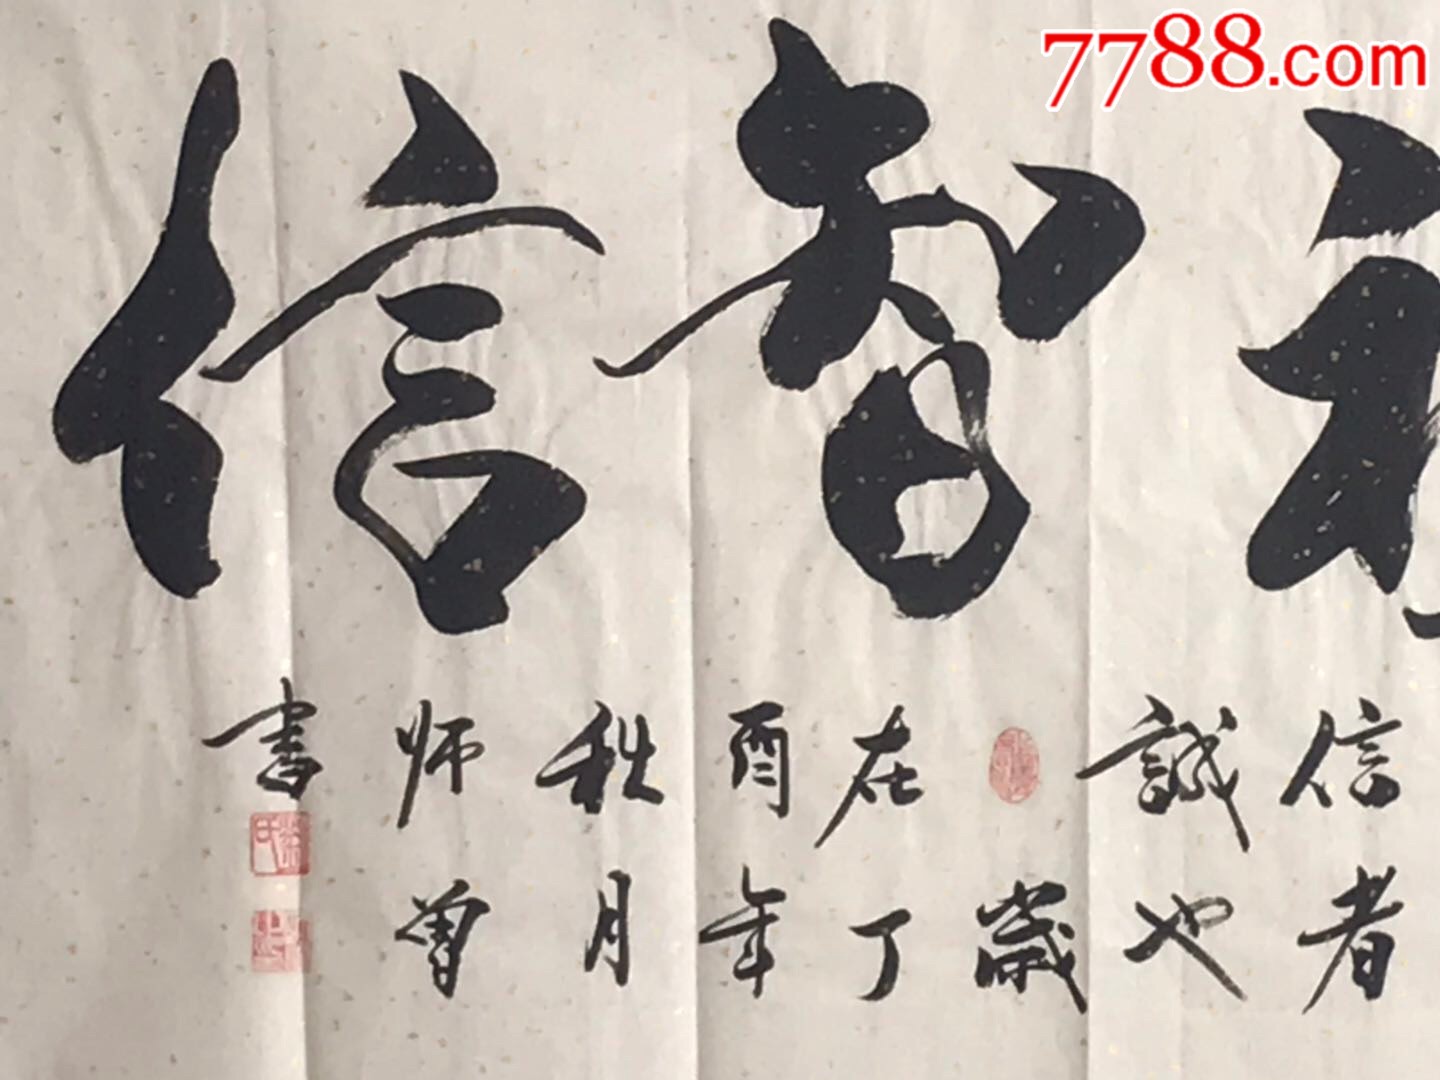 7788.com
智
信
信者
誠也
歲
在丁
酉年
秋月
师曾
書